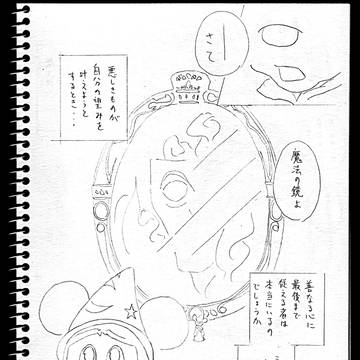 さて
悪しきものが
自分の望みを
叶えようと
するとき・・・
魔法の鏡よ
善なる心に
最後まで
従える者は
本当にいるの
でしょうか